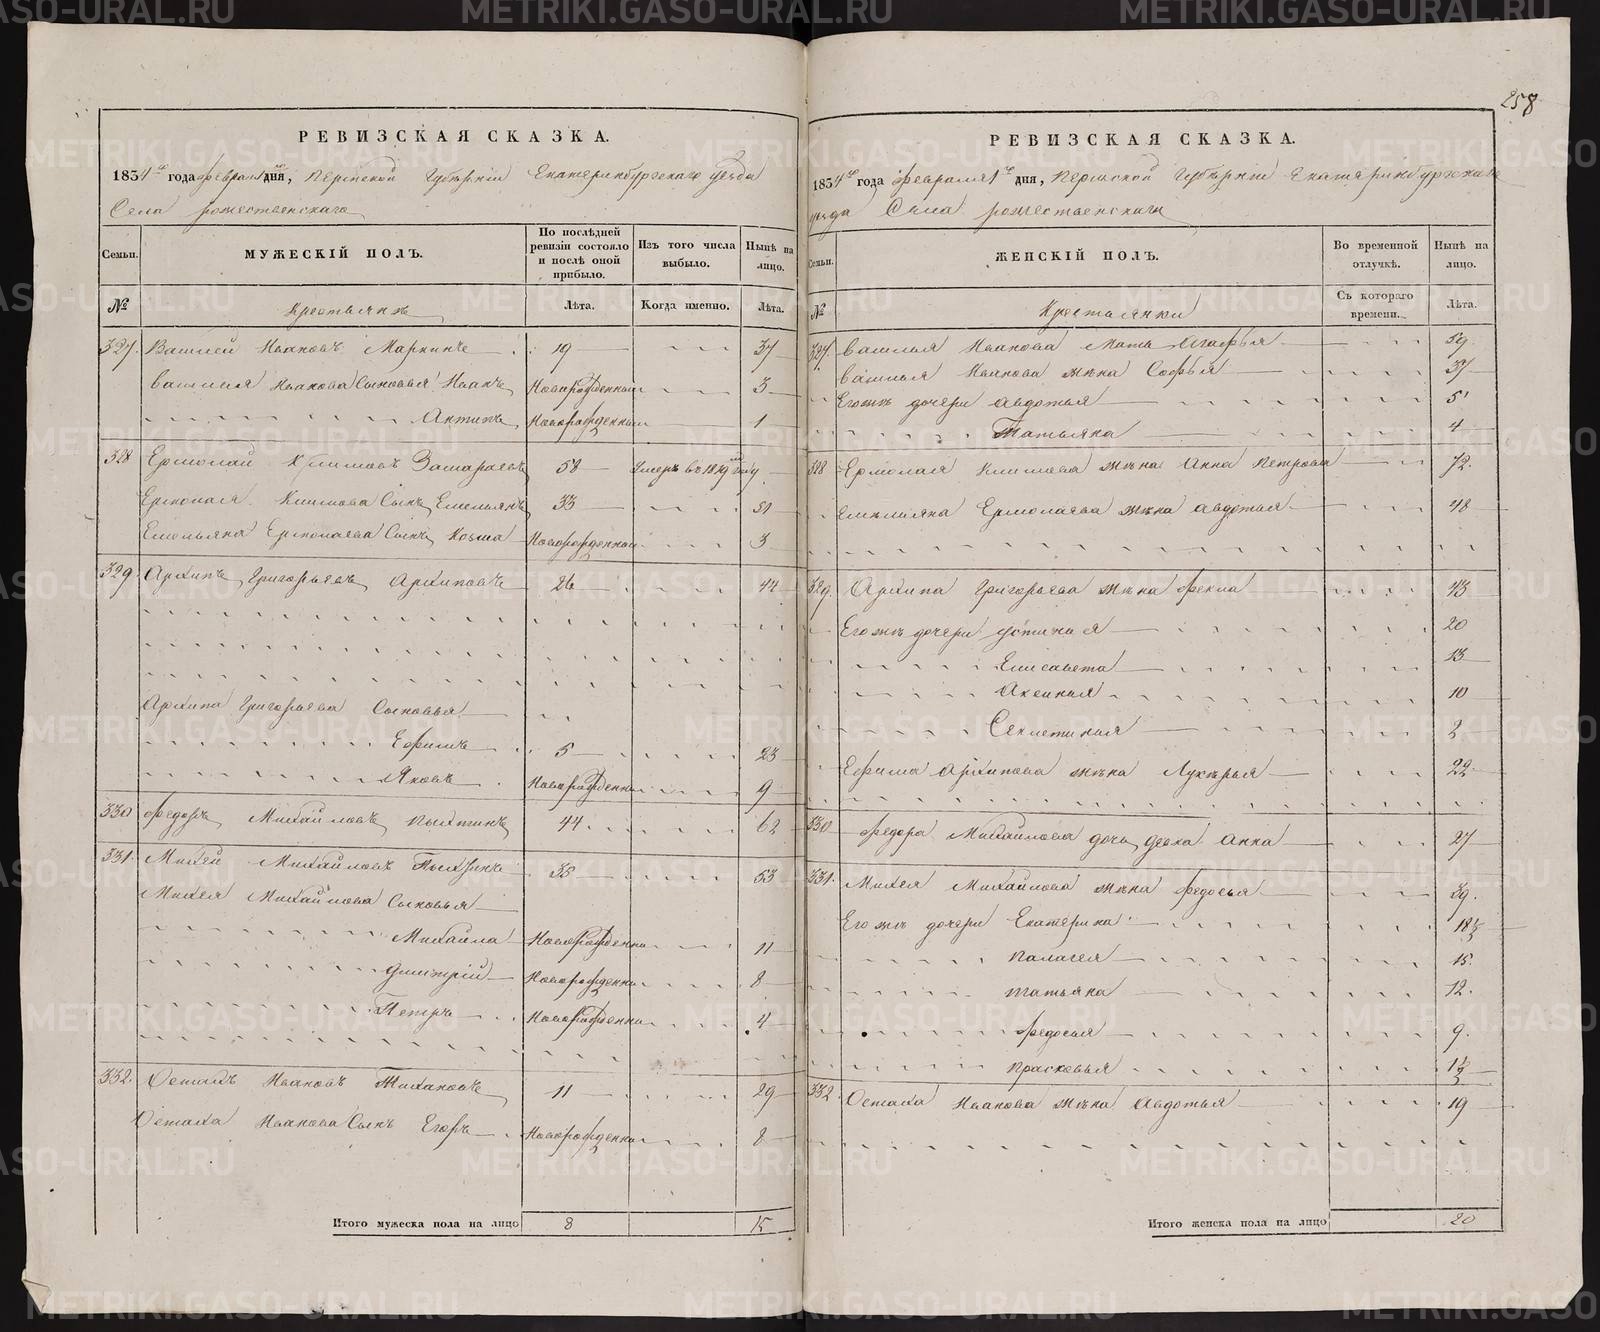 258
РЕВИЗСКАЯ СКАЗКА.
1834го года февраля 1го дня, Пермской Губѣрніи Екатеринбургскаго уезда
Села рожественскаго
Семьи. МУЖЕСКІЙ ПОЛЪ. По послѣдней ревизіи состояло и послѣ оной прибыло. Изъ того числа выбыло. Нынѣ на лицо.
№ Крестьянѣ Лѣта. Когда именно. Лѣта.
327. Василей Ивановъ Маркинъ 19 37
Василья Иванова Сыновья Иванъ Новорожденный 3
Антипъ Новорожденный 1
328 Ермолай Климовъ 58 Умеръ въ 1819м году
Ермолая Климова Сынъ Емельянъ 33 51
Емельяна Ермолаева Сынъ Козма Новорожденный 3
329. Архипъ Григорьевъ Архиповъ 26 44
Архипа Григорьева Сыновья
Ефимъ 5 23
Яковъ Новорожденны 9
330 Федоръ Михайловъ Пыхтинъ 44 62
331. Михей Михайловъ Пыхтинъ 35 53
Михея Михайлова Сыновья
Михайла Новорожденны 11
Дмитрій Новорожденны 8
Петръ Новорожденны 4
332. Осталъ Ивановъ 11 29
Иванова Сынъ Егоръ Новорожденны 8
Итого мужеска пола на лицо 8 15
РЕВИЗСКАЯ СКАЗКА.
1834го года Февраля 1го дня, Пермской Губѣрніи Екатеринбургскаго
уезда Села рожественскаго
Семьи. ЖЕНСКІЙ ПОЛЪ. Во временной отлучкѣ. Нынѣ на лицо.
№ Крестьянки Съ котораго времени. Лѣта.
327. Василья Иванова Мать Агафья 59
Василья Иванова жена Софья 37
Его же дочери Авдотья 5
Татьяна 4
328 Ермолая Климова жена Анна Петрова 72.
Емельяна Ермолаева жена Авдотья 48
329. Архипа Григорьева жена Фекла 43
Его же дочери Устинья 20
Елисавета 13
Аксинья 10
Секлетинья 2
Ефима Архипова жена Лукерья 22
330 Федора Михайлова дочь девка Анна 27
331. Михея Михайлова жена Федосья 39.
Его же дочери Екатерина 18½
Палагея 15.
татьяна 12.
Федосья 9.
Прасковья 1½
332. Иванова жена Авдотья 19
Итого женска пола на лицо 20
METRIKI.GASO-URAL.RU